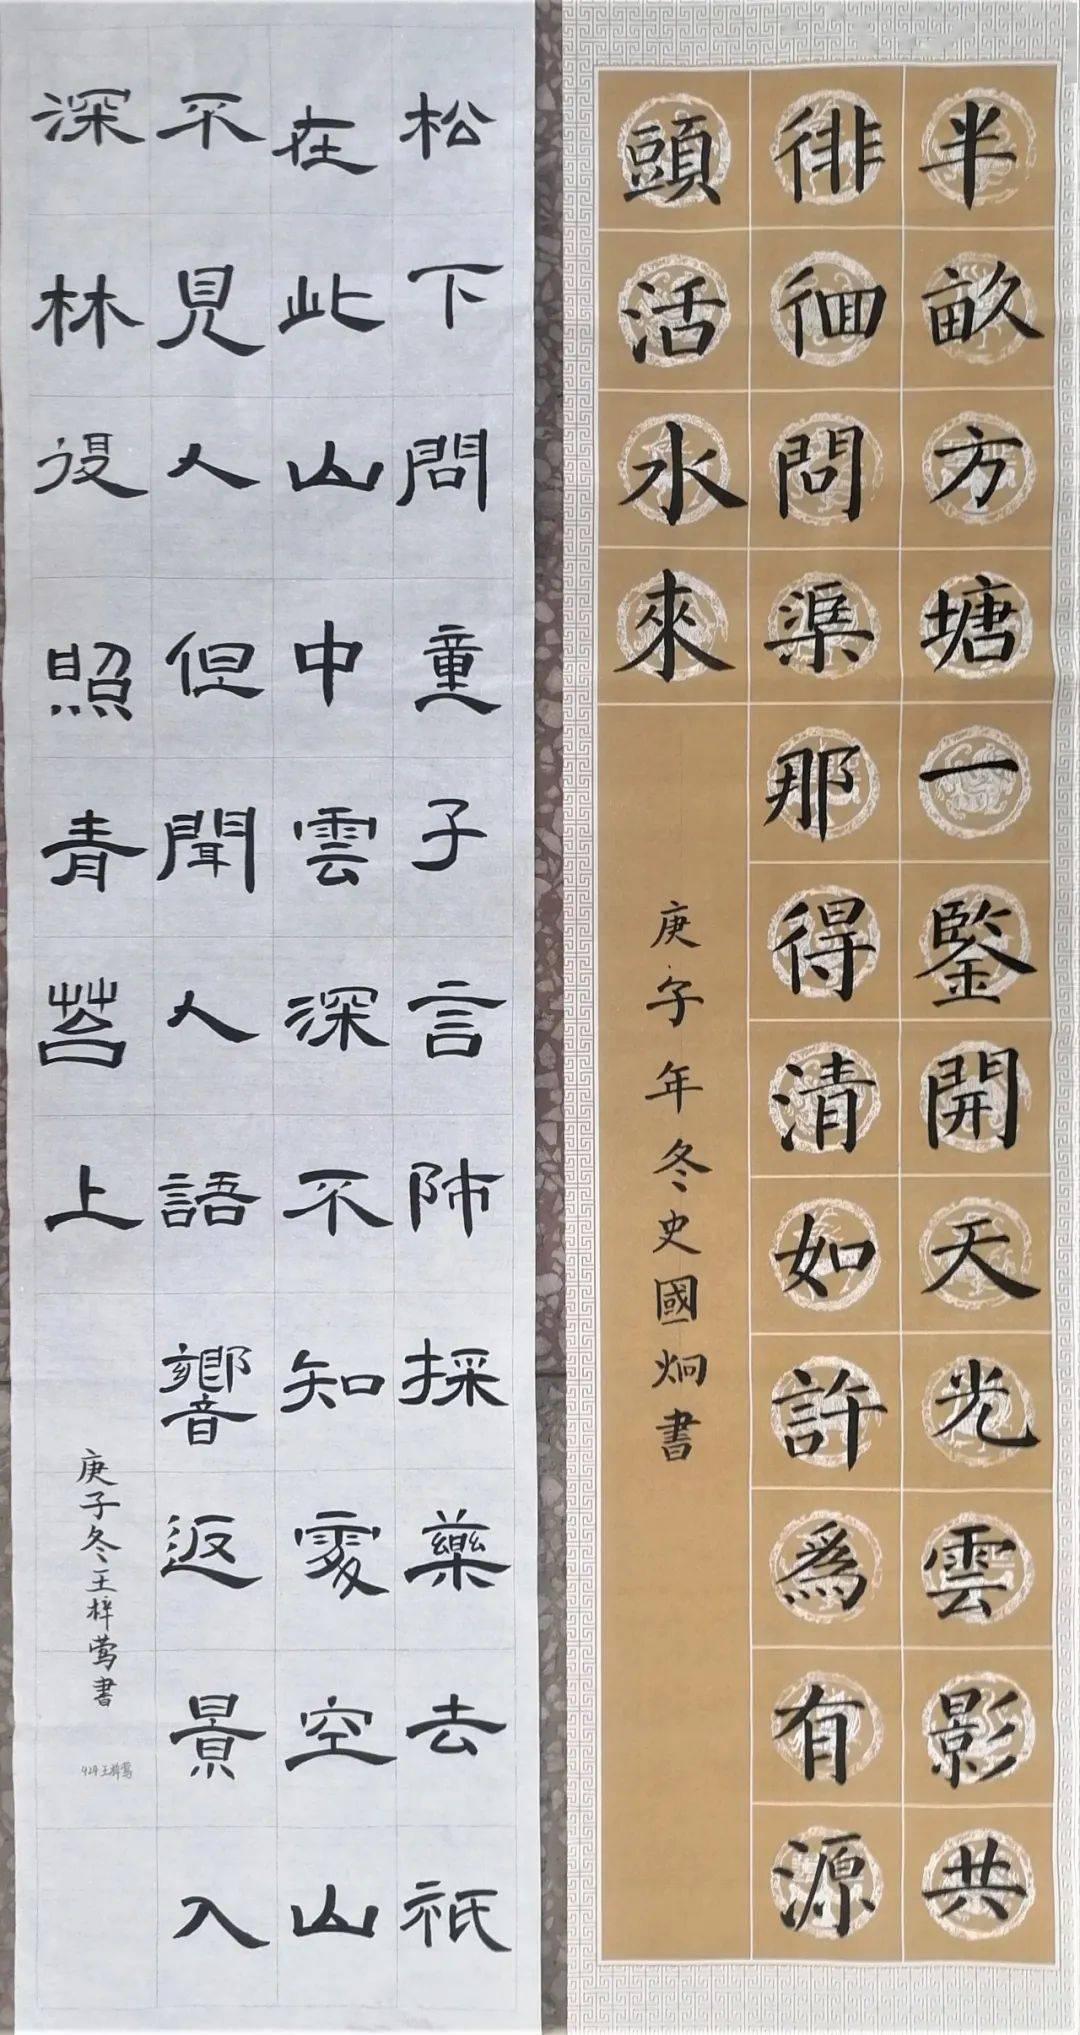 半畒方塘一鑒開天光雲影共
徘徊問渠那得清如許爲有源
頭活水來
庚子年冬史國炯書
松下問童子言師採藥去祇
在此山中雲深不知處空山
不見人但聞人語響返景入
深林復照青苔上
庚子冬王梓莺書
424王梓莺